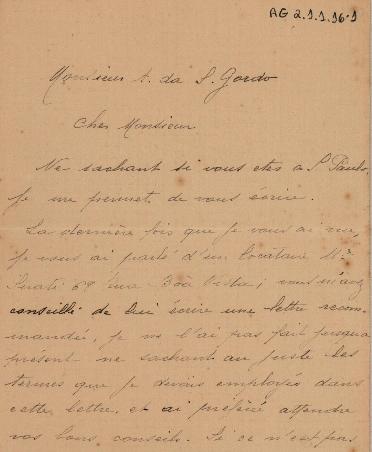 AG 2.1.1.16.1
Monsieur A. da S. Gordo
Cher Monsieur
Ne sachant si vous etes a S. Paulo,
je me permet de vous écrire.
La dernière fois que je vous ai vu,
je vous ai parlé d'un locataire Mr
69 rua Bôa Vista, vous m'avez
conseillé de lui écrire une lettre recom-
mandée, je ne l'ai pas fait jusqu'a
present ne sachant au juste les
termes que je devais employés dans
cette lettre, et ai préféré attendre
vos bons conseils. Si ce n'est pas